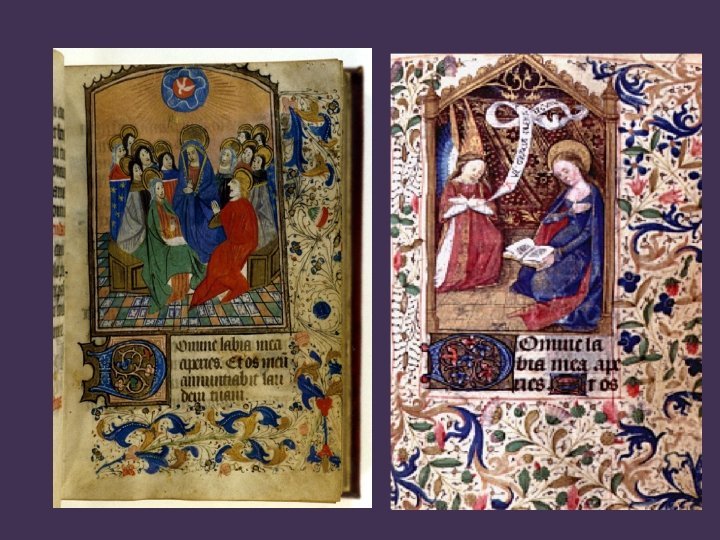 Domine labia mea
aperies. Et os meū
annuntiabit lau
dem tuam.
Domine la
bia mea ape
ries Et os